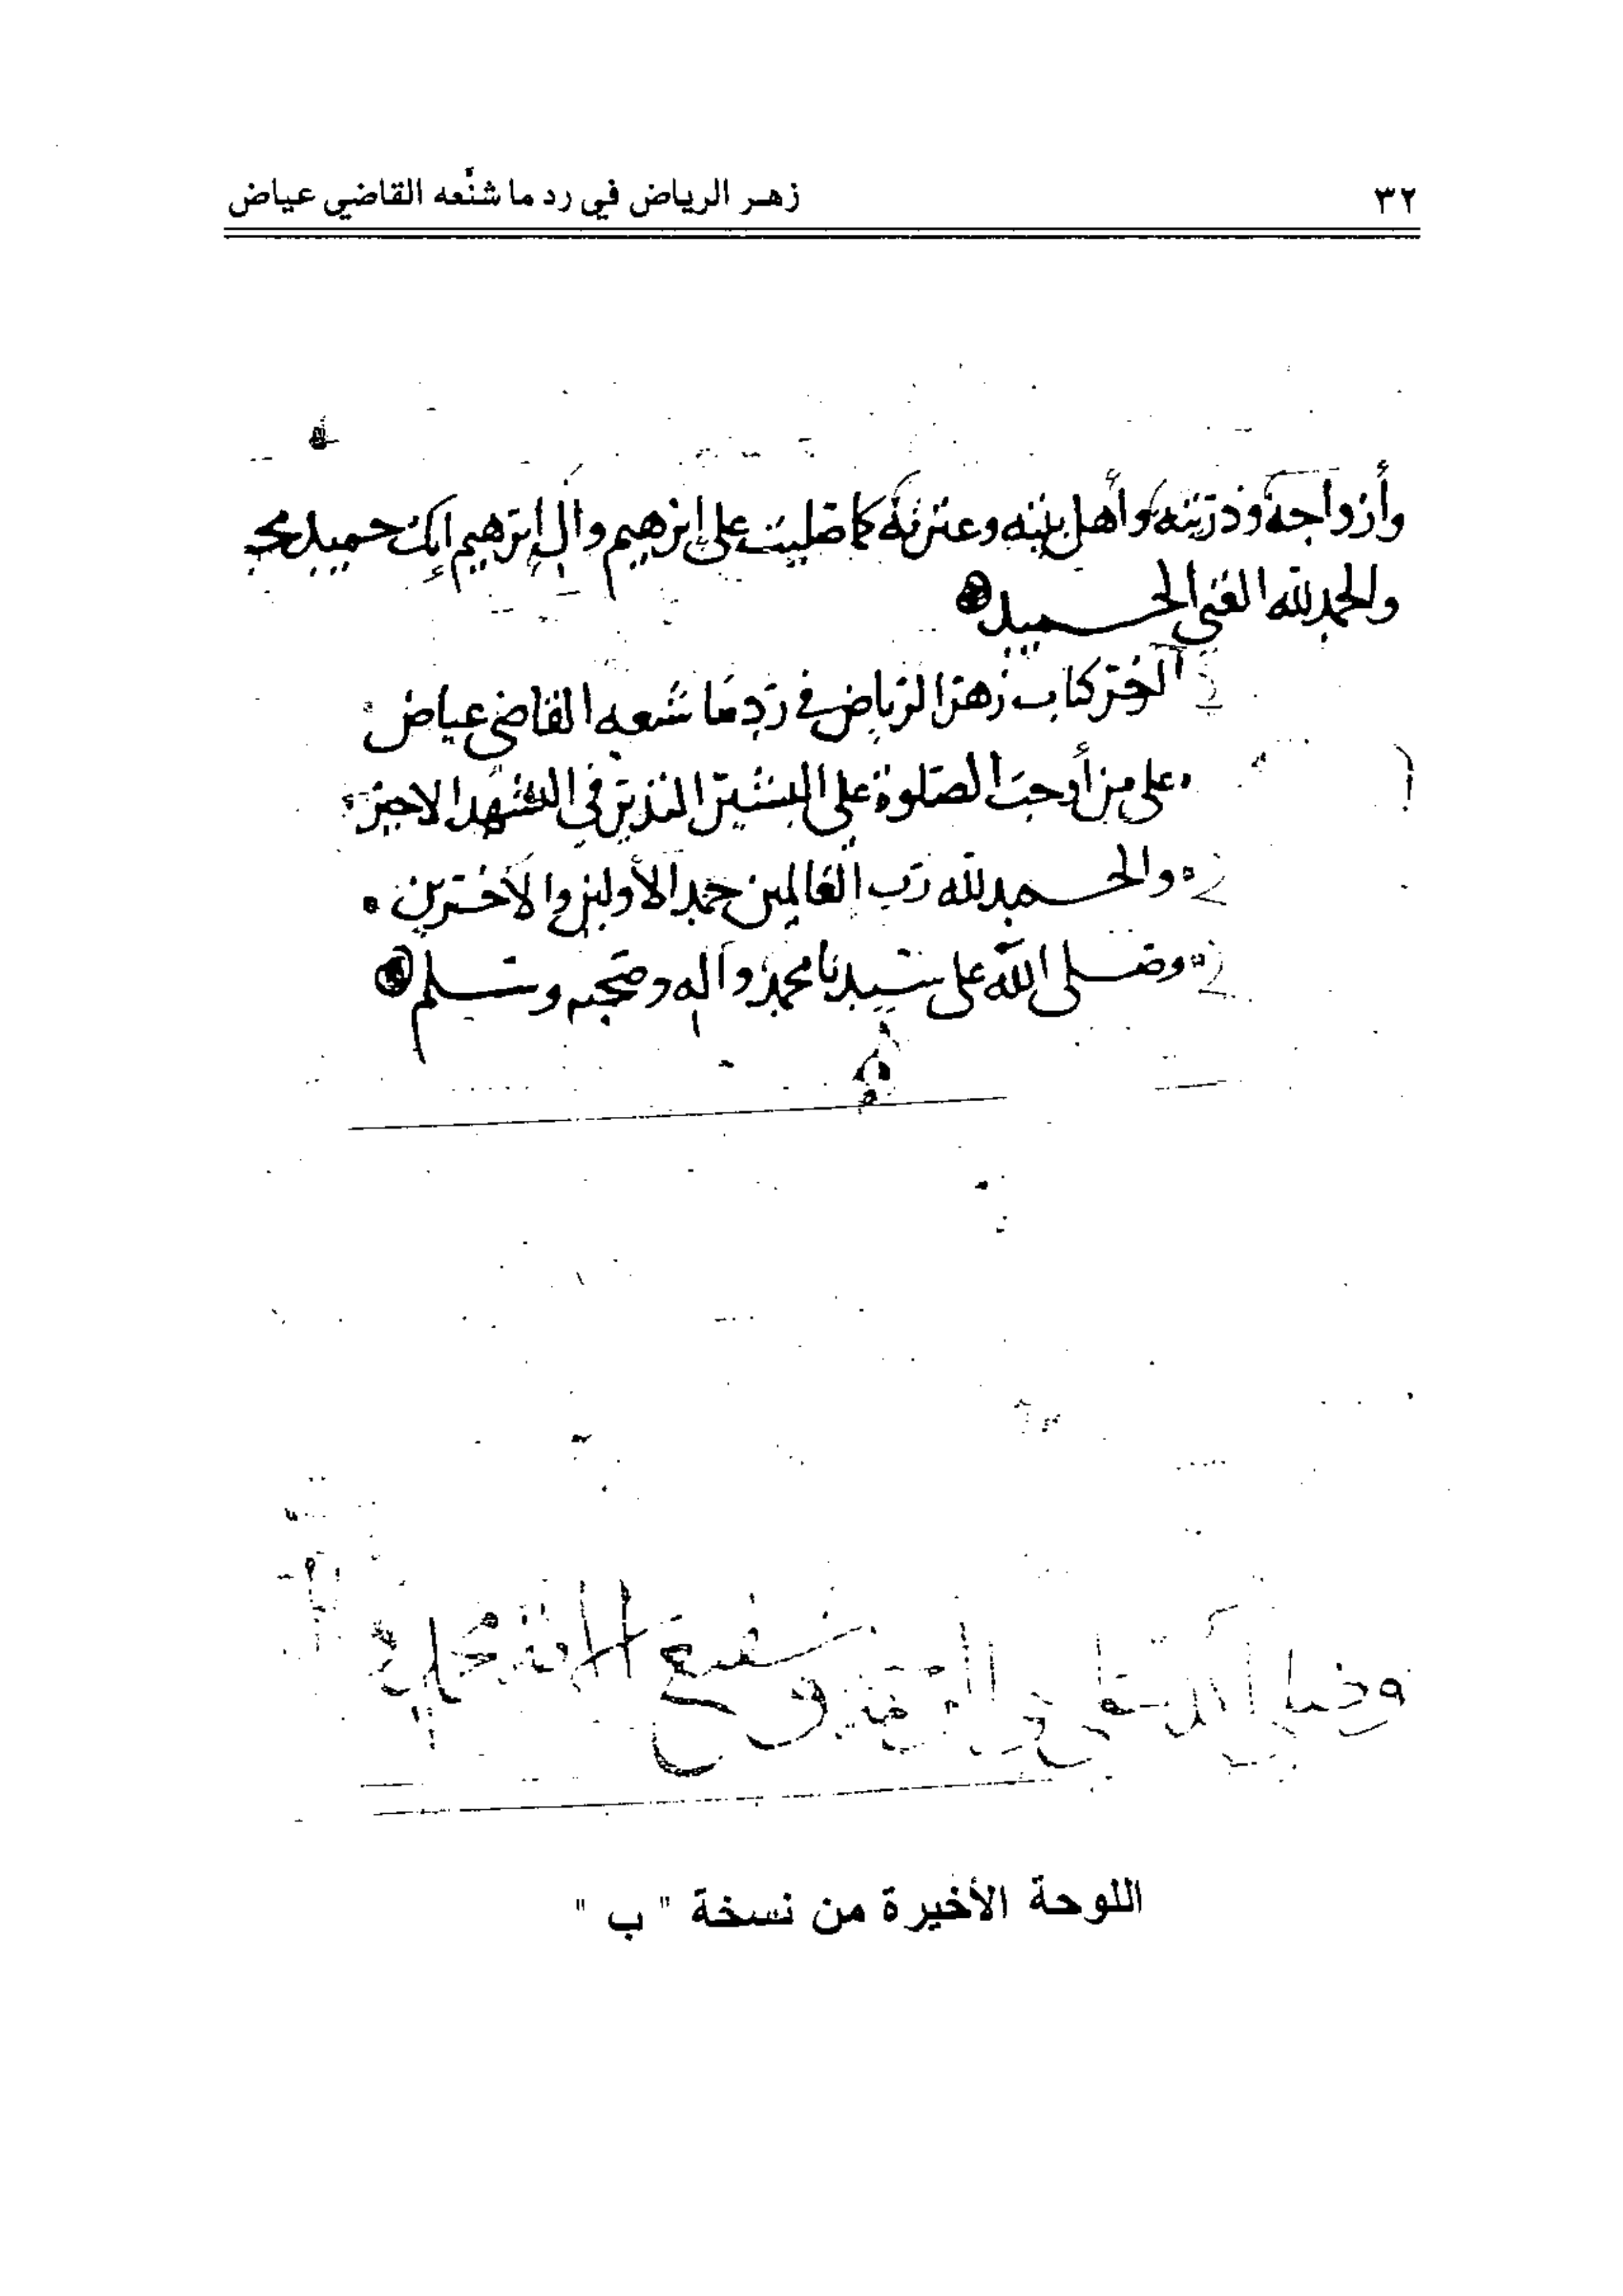 ٣٢ زهر الرياض في رد ما شنّعه القاضي عياض
وأزواجه وذريته وأهل بيته وعترته كما صليت على إبرهيم وآل إبرهيم إنك حميد مجيد
والحمد لله الغني الحميد
آخر كتاب زهر الرياض في رد ما شنعه القاضي عياض
على من أوجب الصلوة على البشير النذير في التشهد الاخير
والحمد لله رب العالمين حمد الأولين والآخرين
وصلى الله على سيدنا محمد وآله وصحبه وسلم
اللوحة الأخيرة من نسخة " ب "